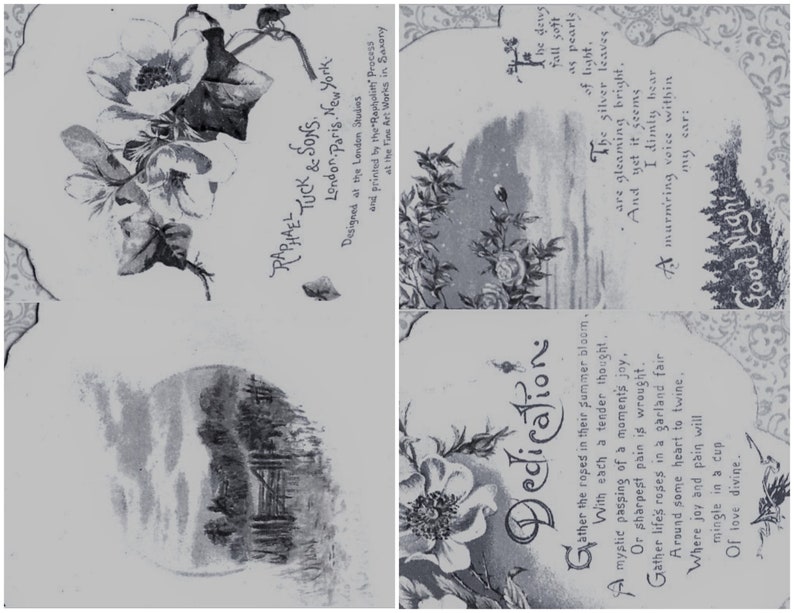 RAPHAEL
TUCK
& SONS,
London. Paris. New York.
Designed at the London Studios
and printed by the "Rapholith" Process
at the Fine Art Works in Saxony
The dews
fall soft
as pearls
of light,
The silver leaves
are gleaming bright,
And yet it seems
I dimly hear
A murm'ring voice within
my ear:
Good Night
Dedication.
Gather the roses in their summer bloom,
With each a tender thought,
A mystic passing of a moment's joy,
Or sharpest pain is wrought.
Gather life's roses in a garland fair
Around some heart to twine,
Where joy and pain will
mingle in a cup
Of love divine.